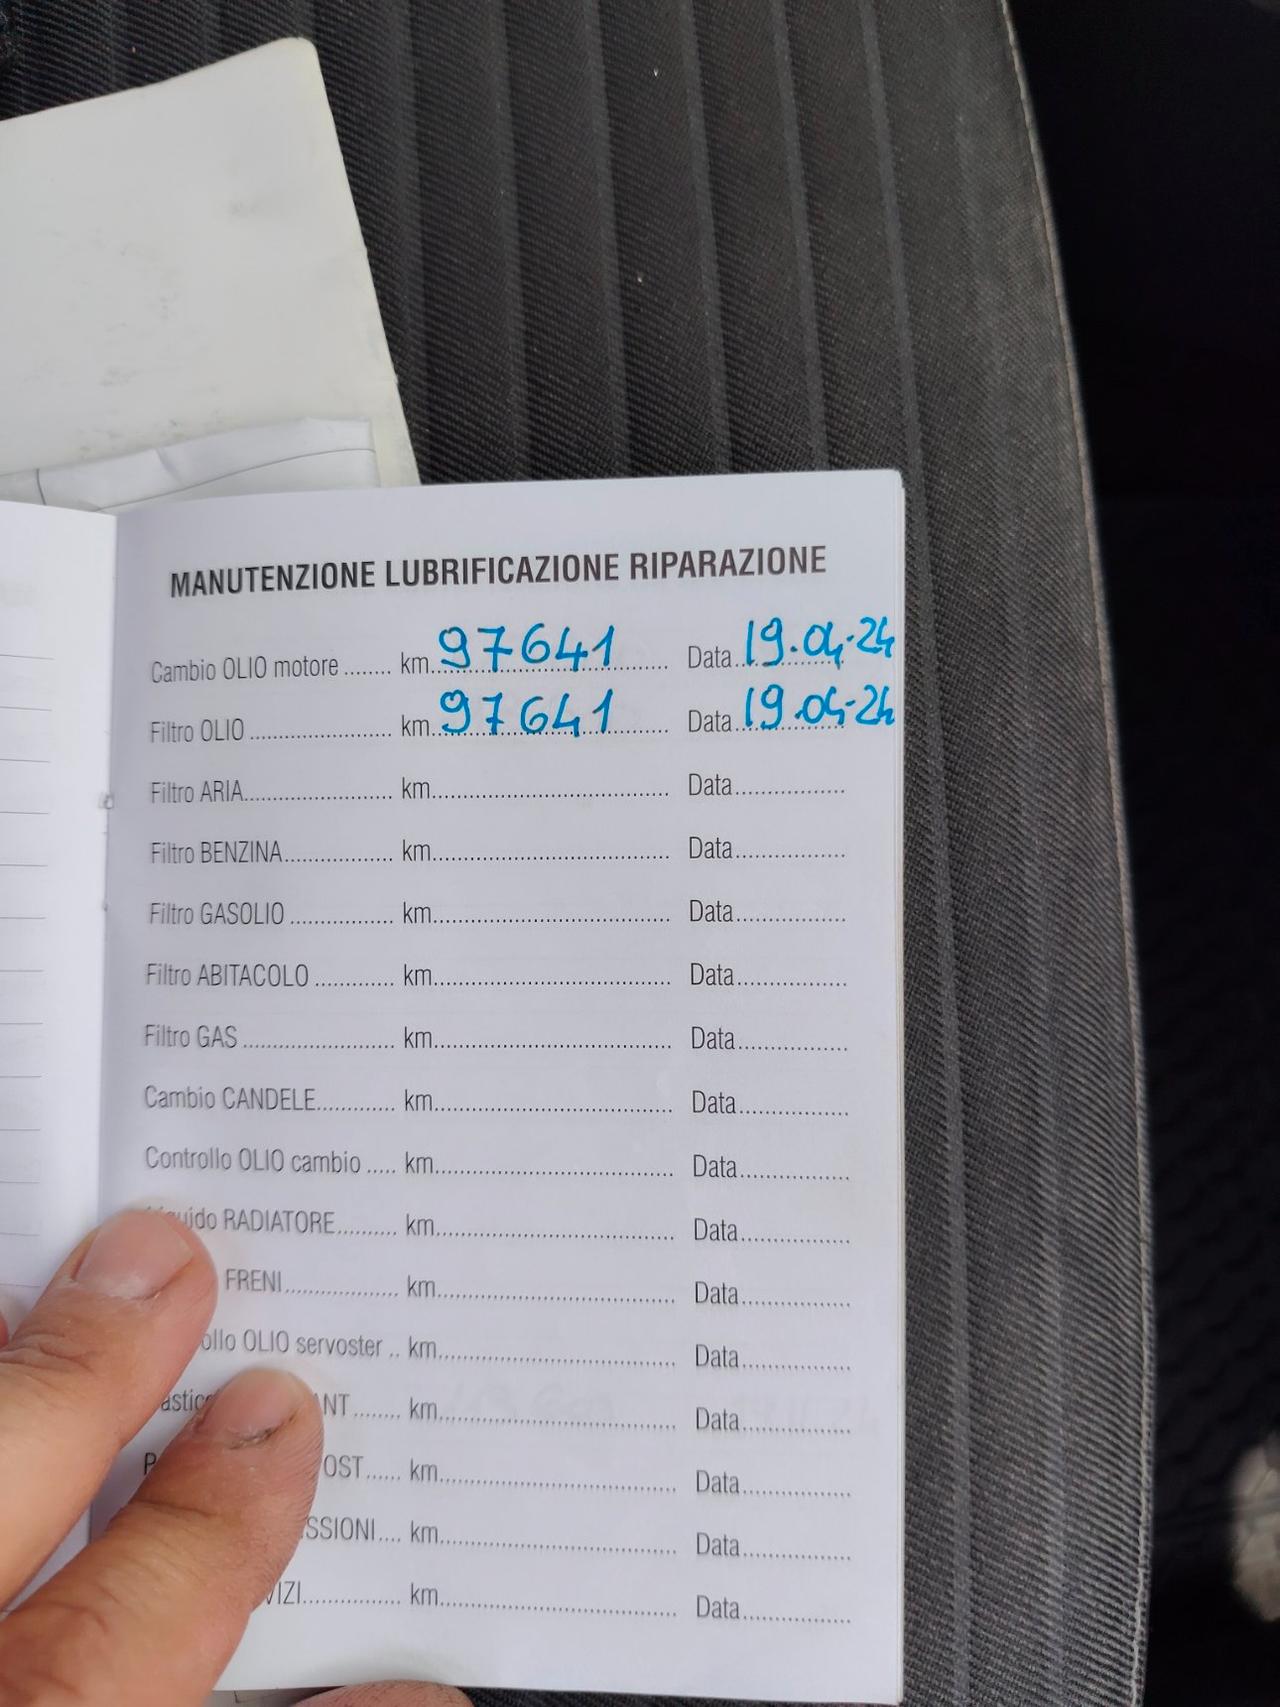 MANUTENZIONE LUBRIFICAZIONE RIPARAZIONE
Cambio OLIO motore ........ km. 97641 Data. 19.04.24
Filtro OLIO ........ km. 97641 Data. 19.04.24
Filtro ARIA ........ km. ........ Data ........
Filtro BENZINA ........ km. ........ Data ........
Filtro GASOLIO ........ km. ........ Data ........
Filtro ABITACOLO ........ km. ........ Data ........
Filtro GAS ........ km. ........ Data ........
Cambio CANDELE ........ km. ........ Data ........
Controllo OLIO cambio ..... km. ........ Data ........
RADIATORE ........ km. ........ Data ........
FRENI ........ km. ........ Data ........
OLIO servoster .. km. ........ Data ........
km. ........ Data ........
km. ........ Data ........
km. ........ Data ........
km. ........ Data ........